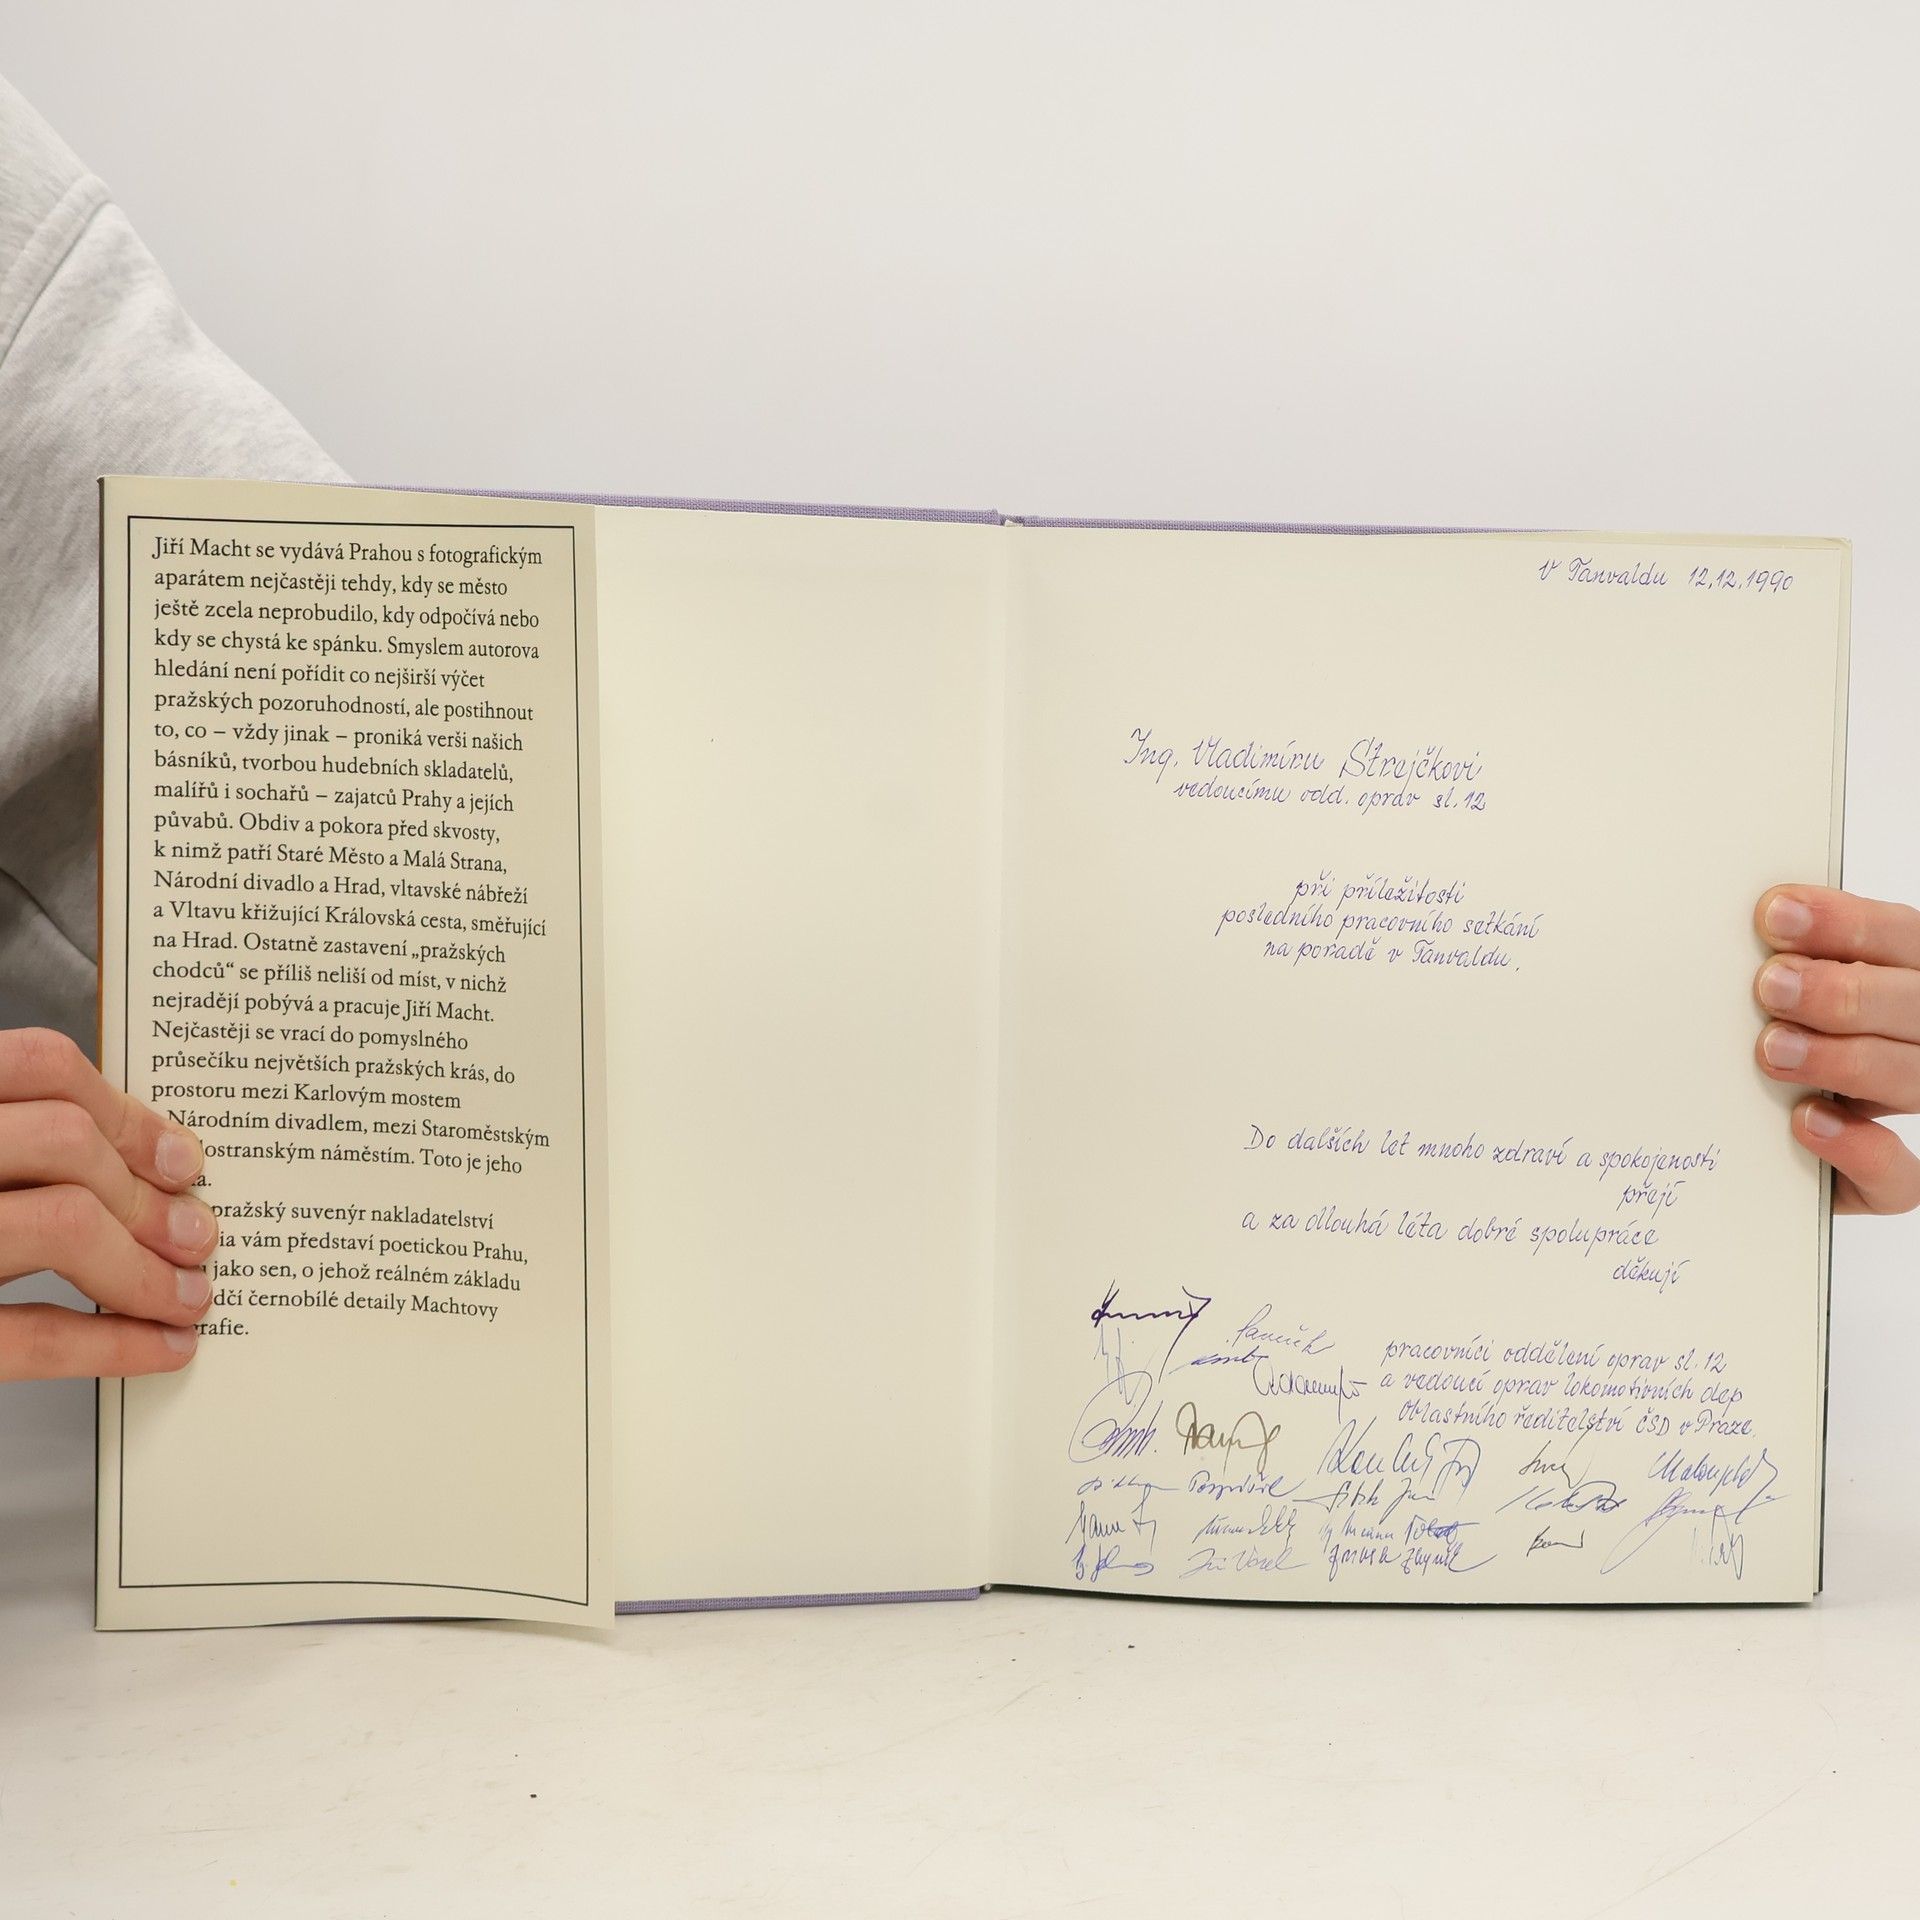 Jiří Macht se vydává Prahou s fotografickým
aparátem nejčastěji tehdy, kdy se město
ještě zcela neprobudilo, kdy odpočívá nebo
kdy se chystá ke spánku. Smyslem autorova
hledání není pořídit co nejširší výčet
pražských pozoruhodností, ale postihnout
to, co – vždy jinak – proniká verši našich
básníků, tvorbou hudebních skladatelů,
malířů i sochařů – zajatců Prahy a jejích
půvabů. Obdiv a pokora před skvosty,
k nimž patří Staré Město a Malá Strana,
Národní divadlo a Hrad, vltavské nábřeží
a Vltavu křižující Královská cesta, směřující
na Hrad. Ostatně zastavení „pražských
chodců“ se příliš neliší od míst, v nichž
nejradějí pobývá a pracuje Jiří Macht.
Nejčastěji se vrací do pomyslného
průsečíku největších pražských krás, do
prostoru mezi Karlovým mostem
Národním divadlem, mezi Staroměstským
ostranským náměstím. Toto je jeho
a.
pražský suvenýr nakladatelství
ia vám představí poetickou Prahu,
jako sen, o jehož reálném základu
dčí černobílé detaily Machtovy
grafie.
V Tanvaldu 12.12.1990
Ing. Vladimíru Strejčkovi
vedoucímu odd. oprav sl. 12
při příležitosti
posledního pracovního setkání
na poradě v Tanvaldu.
Do dalších let mnoho zdraví a spokojenosti
přejí
a za dlouhá léta dobré spolupráce
děkují
pracovníci oddělení oprav sl. 12
a vedoucí oprav lokomotivních dep
Oblastního ředitelství ČSD v Praze.
Pospíšil
Jiří Vosel